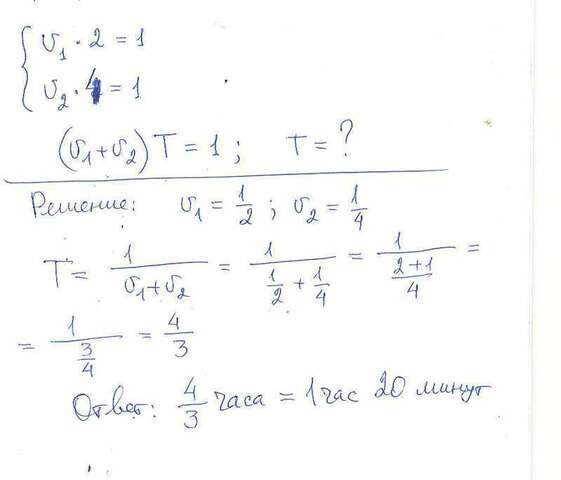 { υ₁ · 2 = 1
υ₂ · 4 = 1
(υ₁+υ₂) T = 1 ; T = ?
Решение: υ₁ = 1/2 ; υ₂ = 1/4
T = 1/(υ₁+υ₂) = 1/(1/2 + 1/4) = 1/((2+1)/4) =
= 1/(3/4) = 4/3
Ответ: 4/3 часа = 1 час 20 минут